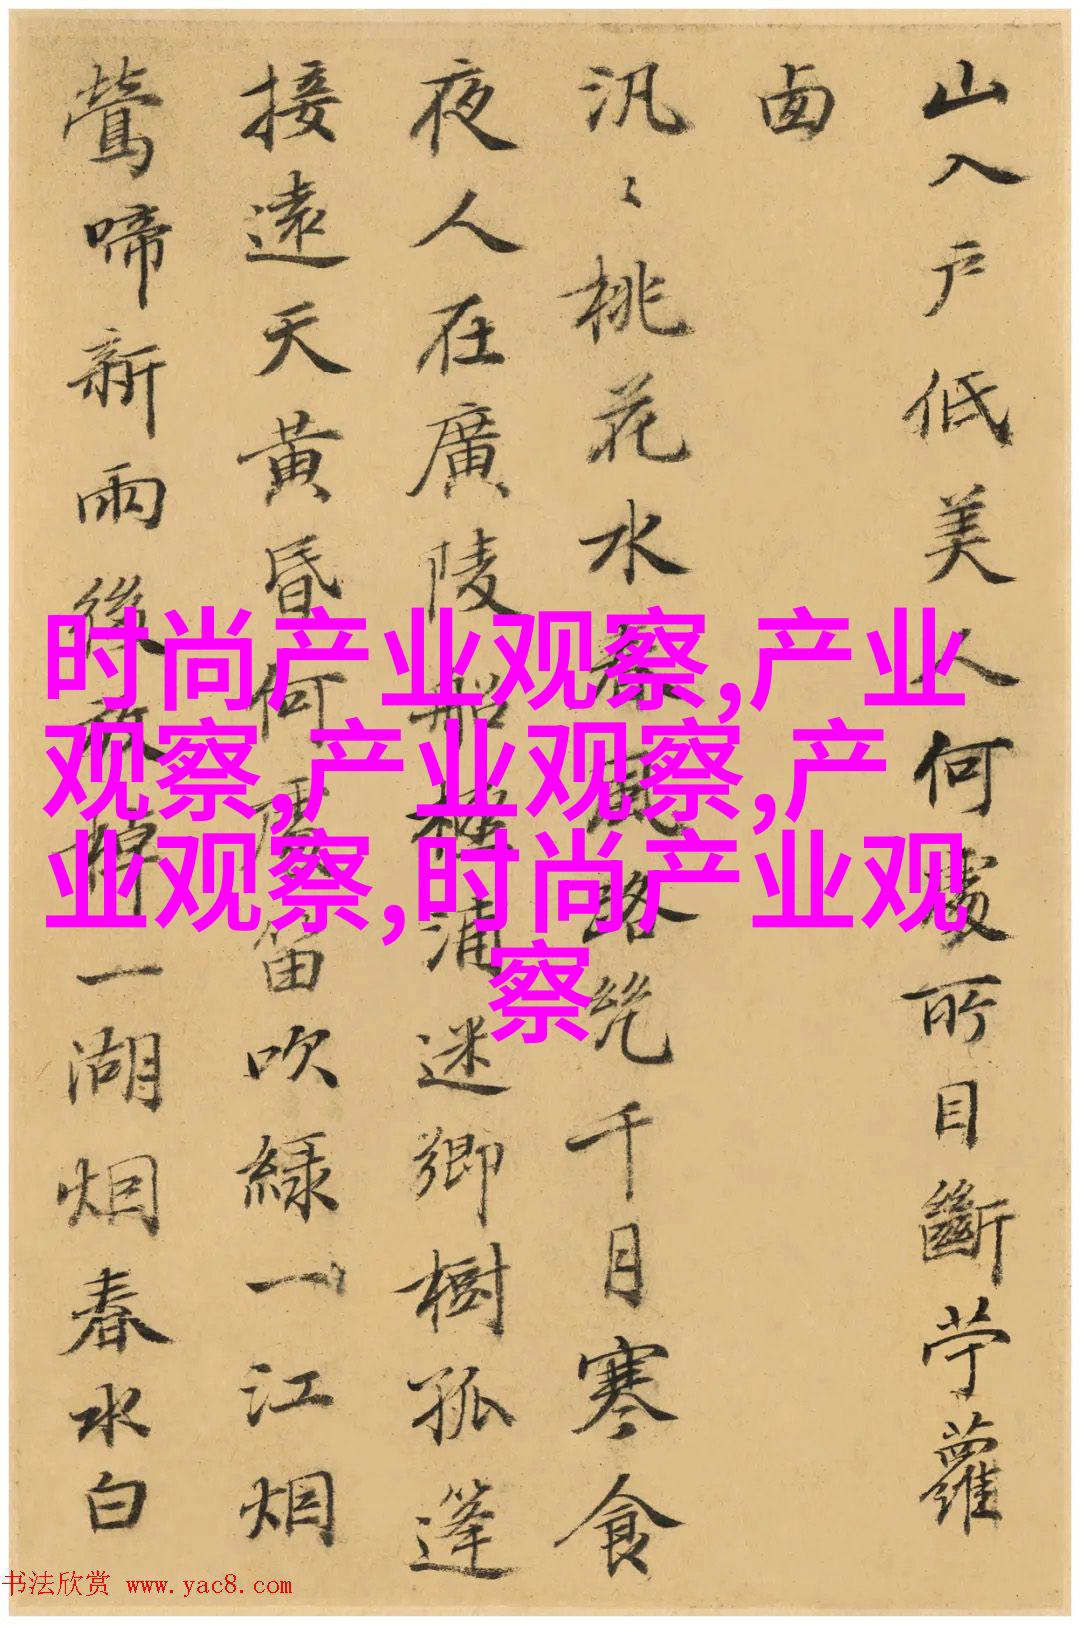 山入戶低美人何處所目斷苧蘿
西
汎〻桃花水春風路絶千月寒食
夜人在廣陵船極浦迷鄉樹孤篷
接遠天黃昏何處笛吹綠一江烟
鶯啼新雨後放棹一湖烟春水白
时尚产业观察,产业
观察,产业观察,产
业观察,时尚产业观
察
书法欣赏 www.yac8.com